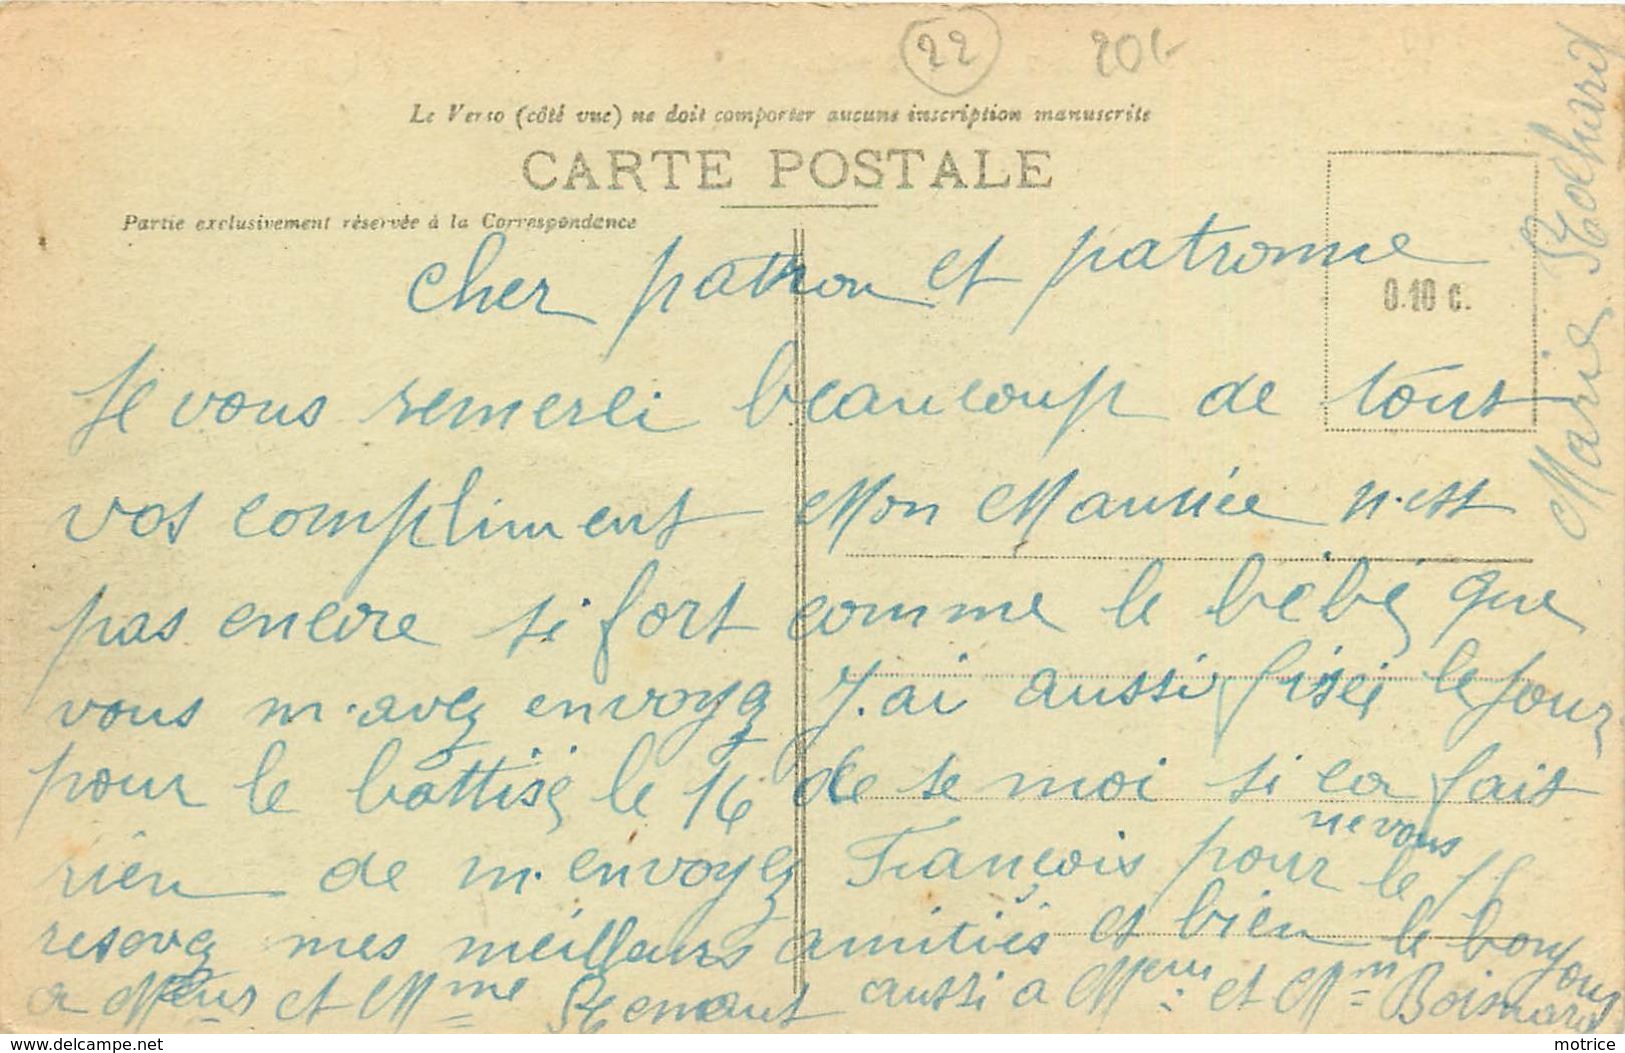 22 20f
Le Verso (côté vue) ne doit comporter aucune inscription manuscrite
CARTE POSTALE
Partie exclusivement réservée à la Correspondance
0.10 c.
cher patron et patronne
Je vous remerci beaucoup de tout
vos compliment Mon Maurice n'est
pas encore si fort comme le bébé que
vous m'avez envoyez J'ai aussi fisei le jour
pour le battisé le 16 de se moi si ca fait
ne vous
rien de m'envoyez Francois pour le 15
resevez mes meilleurs amitiés et bien le bonjour
a Meur et Mme aussi a Meur et Mm Boismard
Marie
motrice